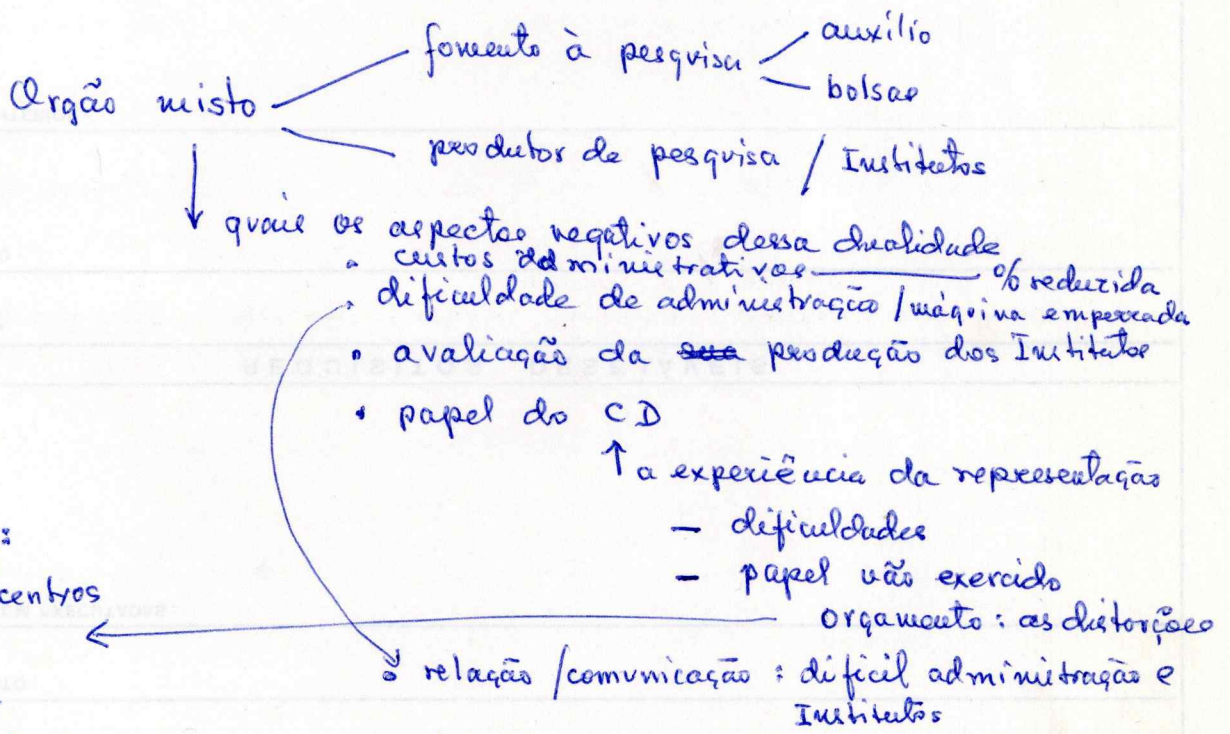 fomento à pesquisa
auxílio
bolsas
Orgão misto
produtor de pesquisa / Institutos
quais os aspectos negativos dessa dualidade
• custos administrativos — % reduzida
• dificuldade de administração / máquina emperrada
• avaliação da sua produção dos Institutos
• papel do CD
↑ a experiência da representação
– dificuldades
– papel não exercido
orçamento: as distorções
centros
relação / comunicação : dificil administração e
Institutos